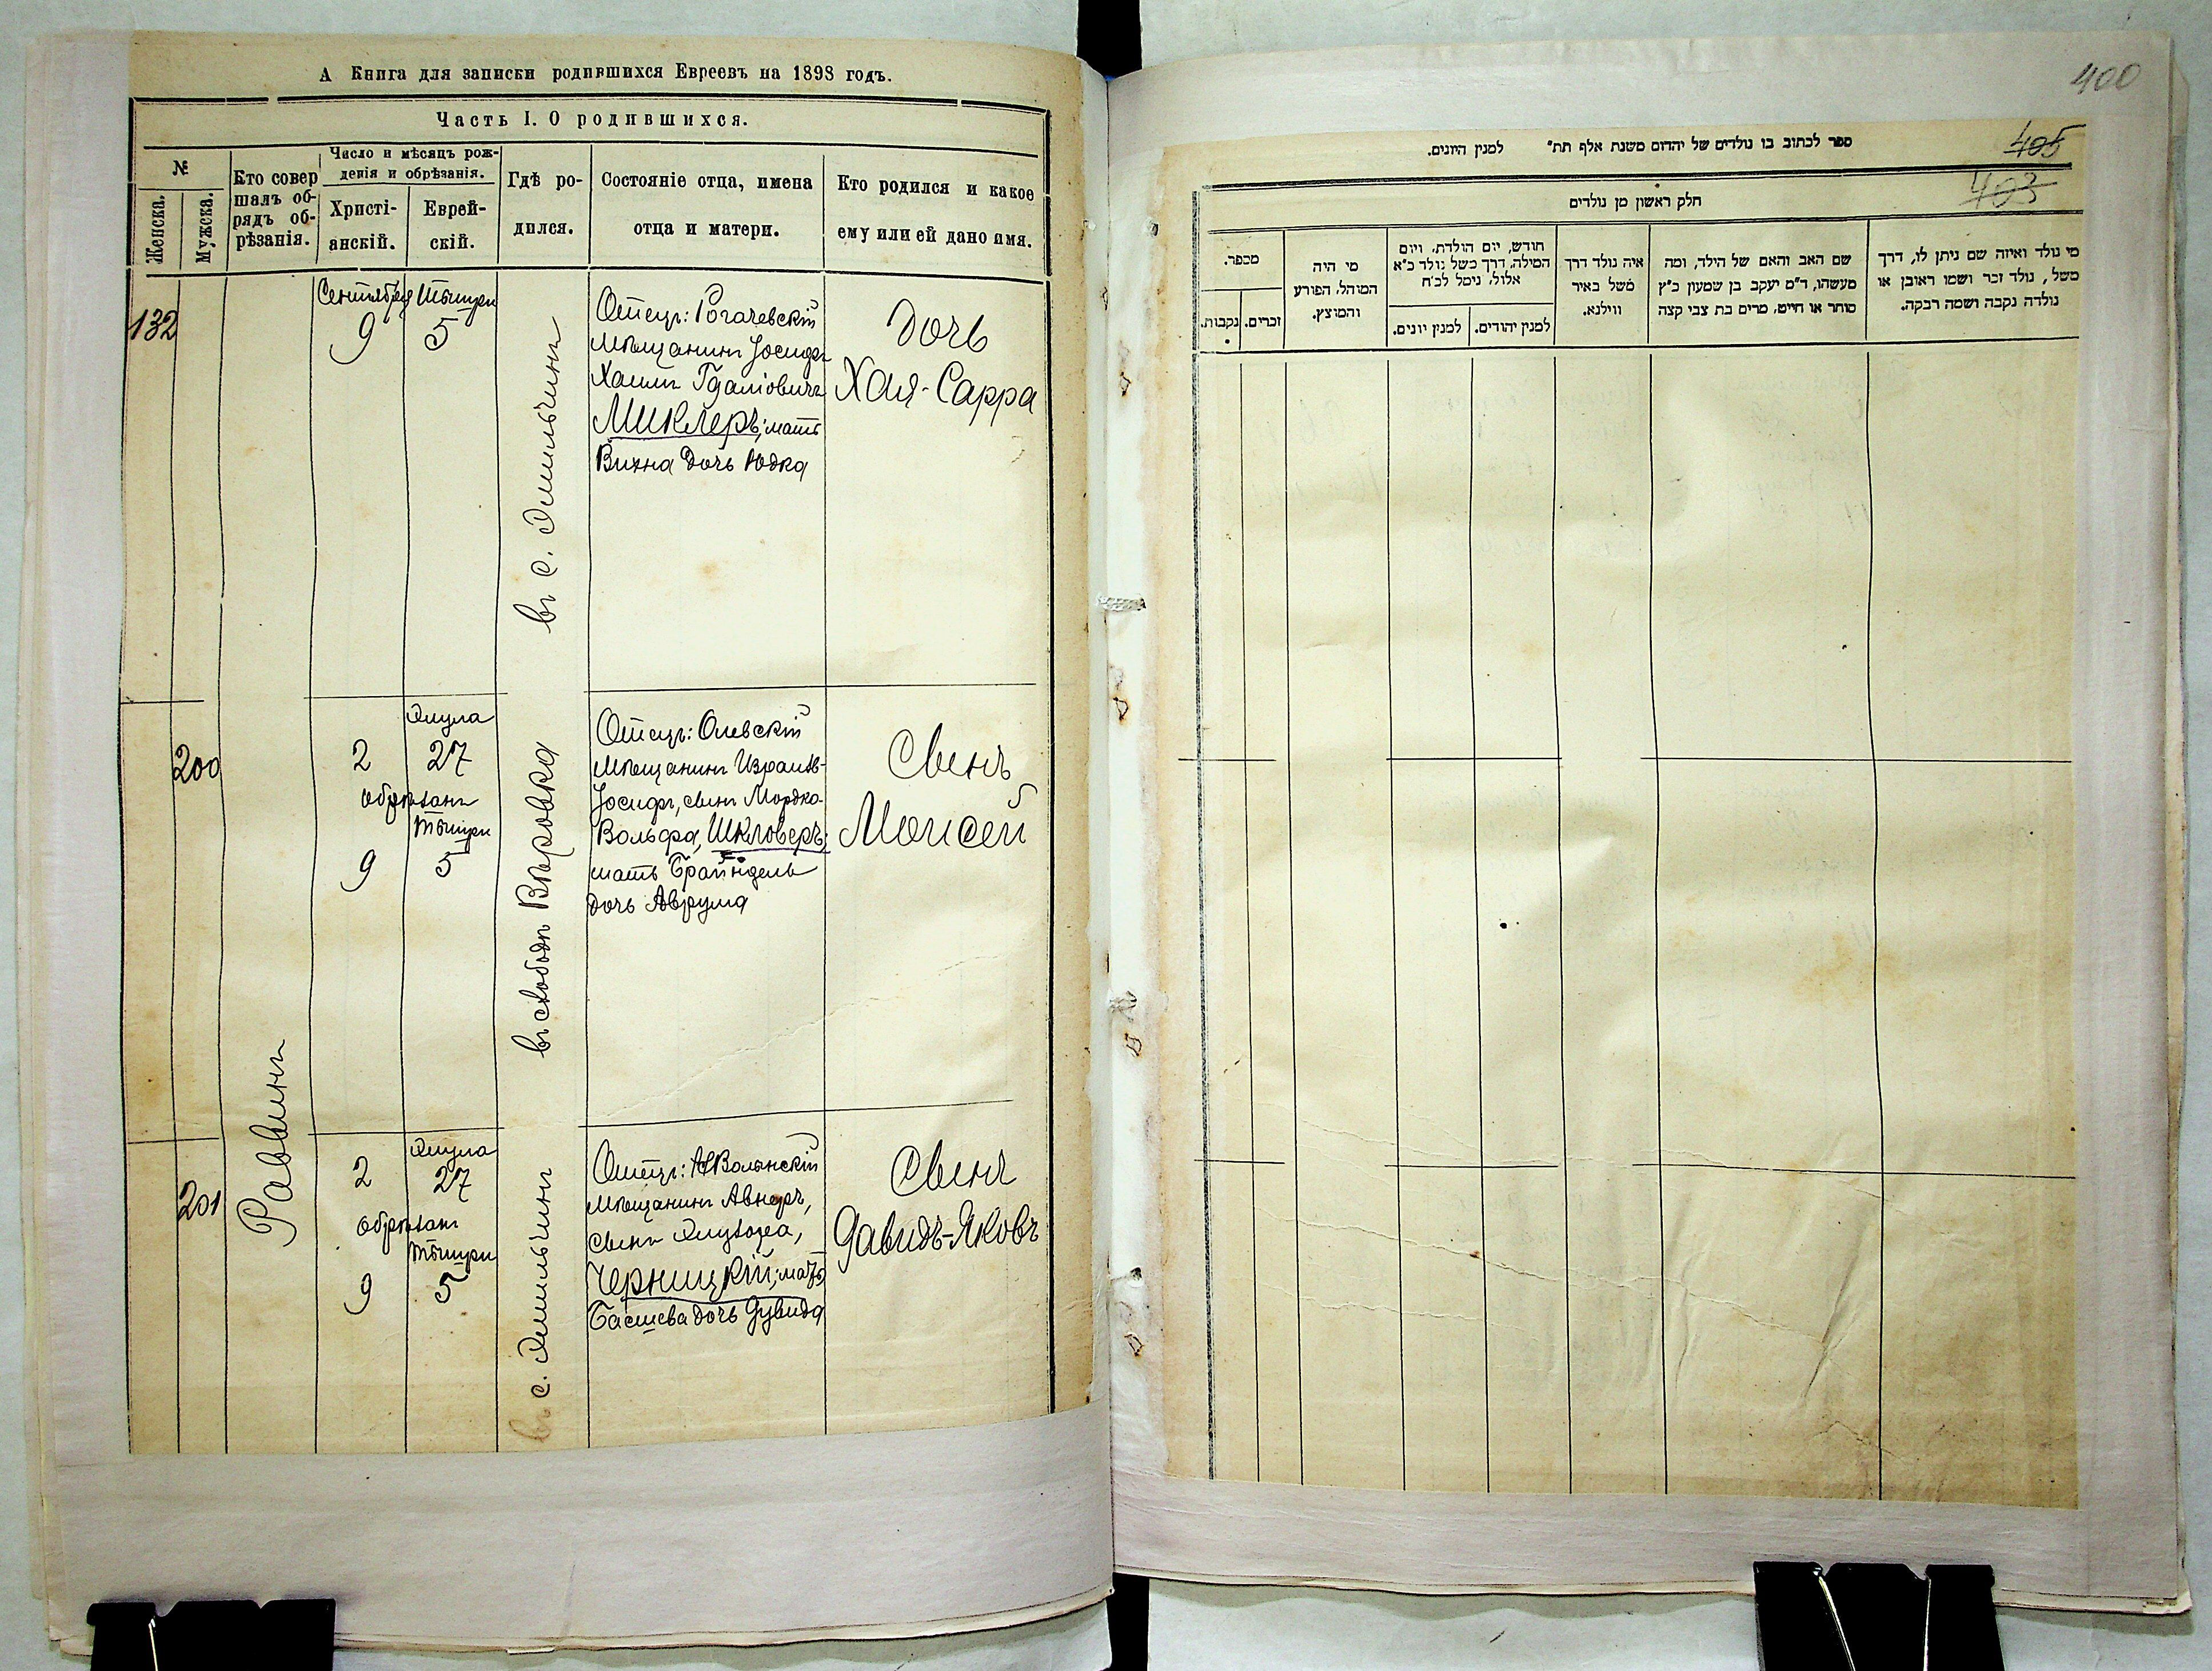 А Книга для записки родившихся Евреевъ на 1898 годъ.
Часть I. О родившихся.
№
Женска.
Мужска.
Кто совер
шалъ об-
рядъ об-
рѣзанія.
Число и мѣсяцъ рож-
денія и обрѣзанія.
Христі-
анскій.
Еврей-
скій.
Гдѣ ро-
дился.
Состояніе отца, имена
отца и матери.
Кто родился и какое
ему или ей дано имя.
132
Сентября Тышри
9 5
в с. Эмильчинѣ
Отецъ: Рогачевскій
мѣщанинъ Іосифъ
Хаимъ Гдаліовичъ
Миклеръ; мать
Вихна дочь Юдка
Дочь
Хая-Сарра
200
Элула
2 27
обрѣзанъ
Тышри
9 5
въ слободѣ Вѣровка
Отецъ: Олевскій
мѣщанинъ Израиль-
Іосифъ, сынъ Мордко-
Вольфа, Шкловеръ;
мать Брайндель
дочь Аврума
Сынъ
Моисей
Раввинъ
201
Элула
2 27
обрѣзанъ
Тышри
9 5
въ с. Эмильчинѣ
Отецъ: НВолынскій
мѣщанинъ Авнеръ,
сынъ Эльязера,
Черницкій; мать
Басшева дочь Дувида
Сынъ
Давидъ-Яковъ
400
405
403
ספר לכתוב בו נולדים של יהדום משנת אלף תת״ למנין היונים.
חלק ראשון מן נולדים
מספר.
נקבות.
זכרים.
מי היה
המוהל, הפורע
והמוצץ.
חודש, יום הולדת, ויום
המילה, דרך משל נולד כ״א
אלול, נימל לכ״ח
למנין יונים.
למנין יהודים.
איה נולד דרך
משל באיר
ווילנא.
שם האב והאם של הילד, ומה
מעשהו, ד״מ יעקב בן שמעון כ״ץ
סוחר או חייט, מרים בת צבי קצה
מי נולד ואיזה שם ניתן לו, דרך
משל, נולד זכר ושמו ראובן או
נולדה נקבה ושמה רבקה.